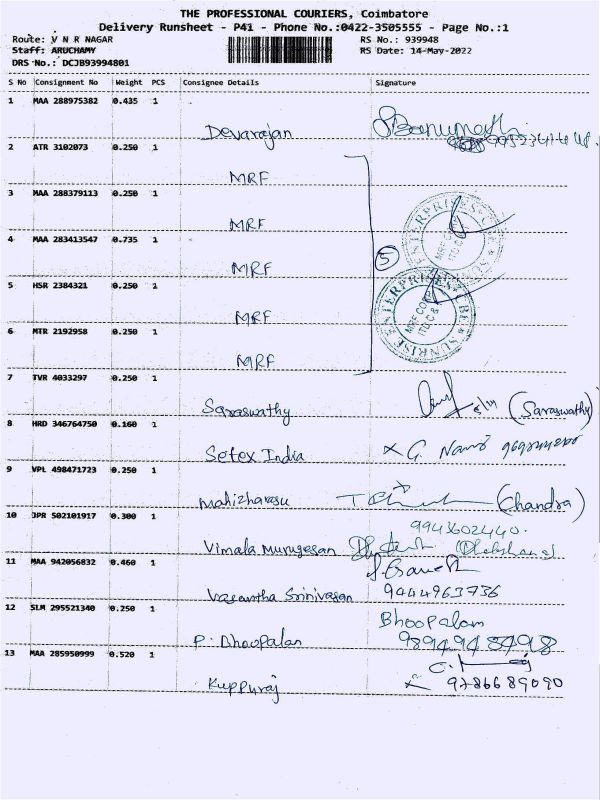 THE PROFESSIONAL COURIERS, Coimbatore
Delivery Runsheet - P41 - Phone No.:0422-3505555 - Page No.:1
Route: V N R NAGAR RS No.: 939948
Staff: ARUCHAMY RS Date: 14-May-2022
DRS No.: DCJB93994801
S No Consignment No Weight PCS Consignee Details Signature
1 MAA 288975382 0.435 1
Devarajan
2 ATR 3102073 0.250 1
MRF
3 MAA 288379113 0.250 1
MRF
4 MAA 283413547 0.735 1
MRF
5
5 HSR 2384321 0.250 1
MRF
6 MTR 2192958 0.250 1
MRF
7 TVR 4033297 0.250 1
Saraswathy (Saraswathy)
8 HRD 346764750 0.160 1
Setex India
9 VPL 498471723 0.250 1
Mahizharasu (Chandra)
10 JPR 502101917 0.300 1
9943602440.
Vimala Murugesan
11 MAA 942056832 0.460 1
Vasantha Srinivasan 9444963736
12 SLM 295521340 0.250 1
Bhoopalan
P. Bhoopalan 9894948498
13 MAA 285950999 0.520 1
Kuppuraj 9786689090